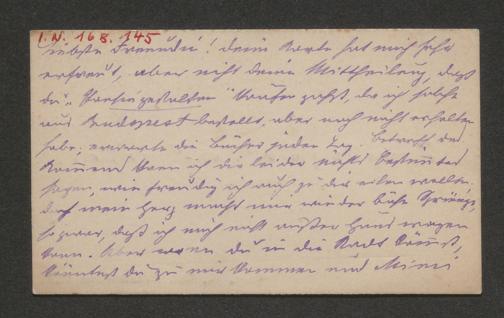 I.N. 168.145
Liebste Freundin! Deine Karte hat mich sehr
erfreut, aber nicht Deine Mittheilung, daß
du " " kaufen gehst, da ich solche
aus Budapest bestellt, aber noch nicht erhalten
habe, erwarte die Bücher jeden Tag. Betreff des
Kommens kann ich dir leider nichts bestimmtes
sagen, wie freudig ich auch zu dir eilen wollte.
doch mein Herz macht mir wieder böse Sprünge,
so zwar, daß ich mich nicht außer Haus wagen
kann. Aber wenn du in die Stadt kömmst,
könntest du zu mir kommen und Mimi